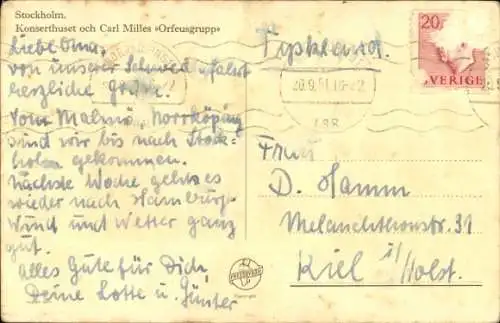 Stockholm.
Konserthuset och Carl Milles »Orfeusgrupp»
Liebe Oma,
von unserer Schwedenfahrt
herzliche Grüße.
Von Malmö, Norrköping
sind wir bis nach Stock-
holm gekommen.
Nächste Woche geht es
wieder nach Hamburg.
Wind und Wetter ganz
gut.
Alles Gute für Dich,
Deine Lotte u. Günter
Tyskland.
20
SVERIGE
20.9.51
Frau
D. Hamm
Melanchthonstr. 31
Kiel i/Holst.